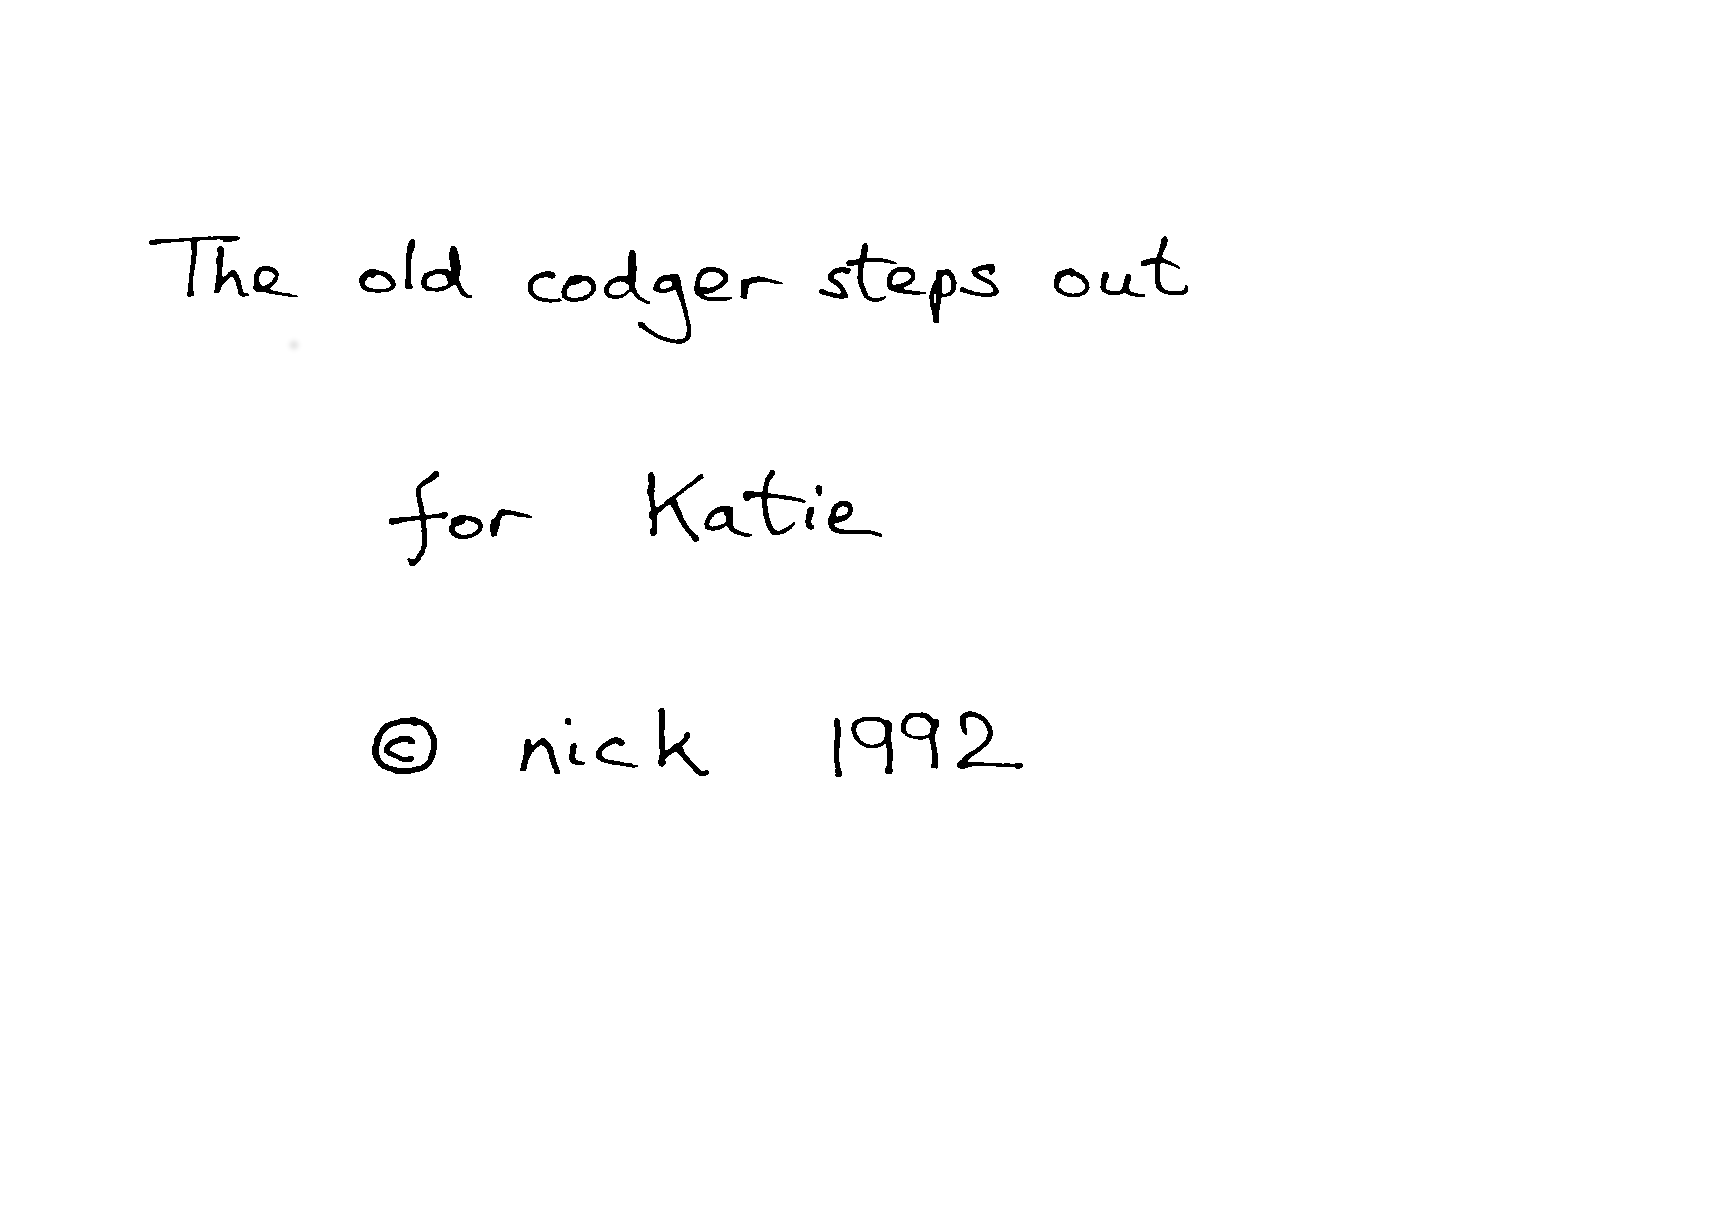 The old codger steps out
for Katie
© nick 1992